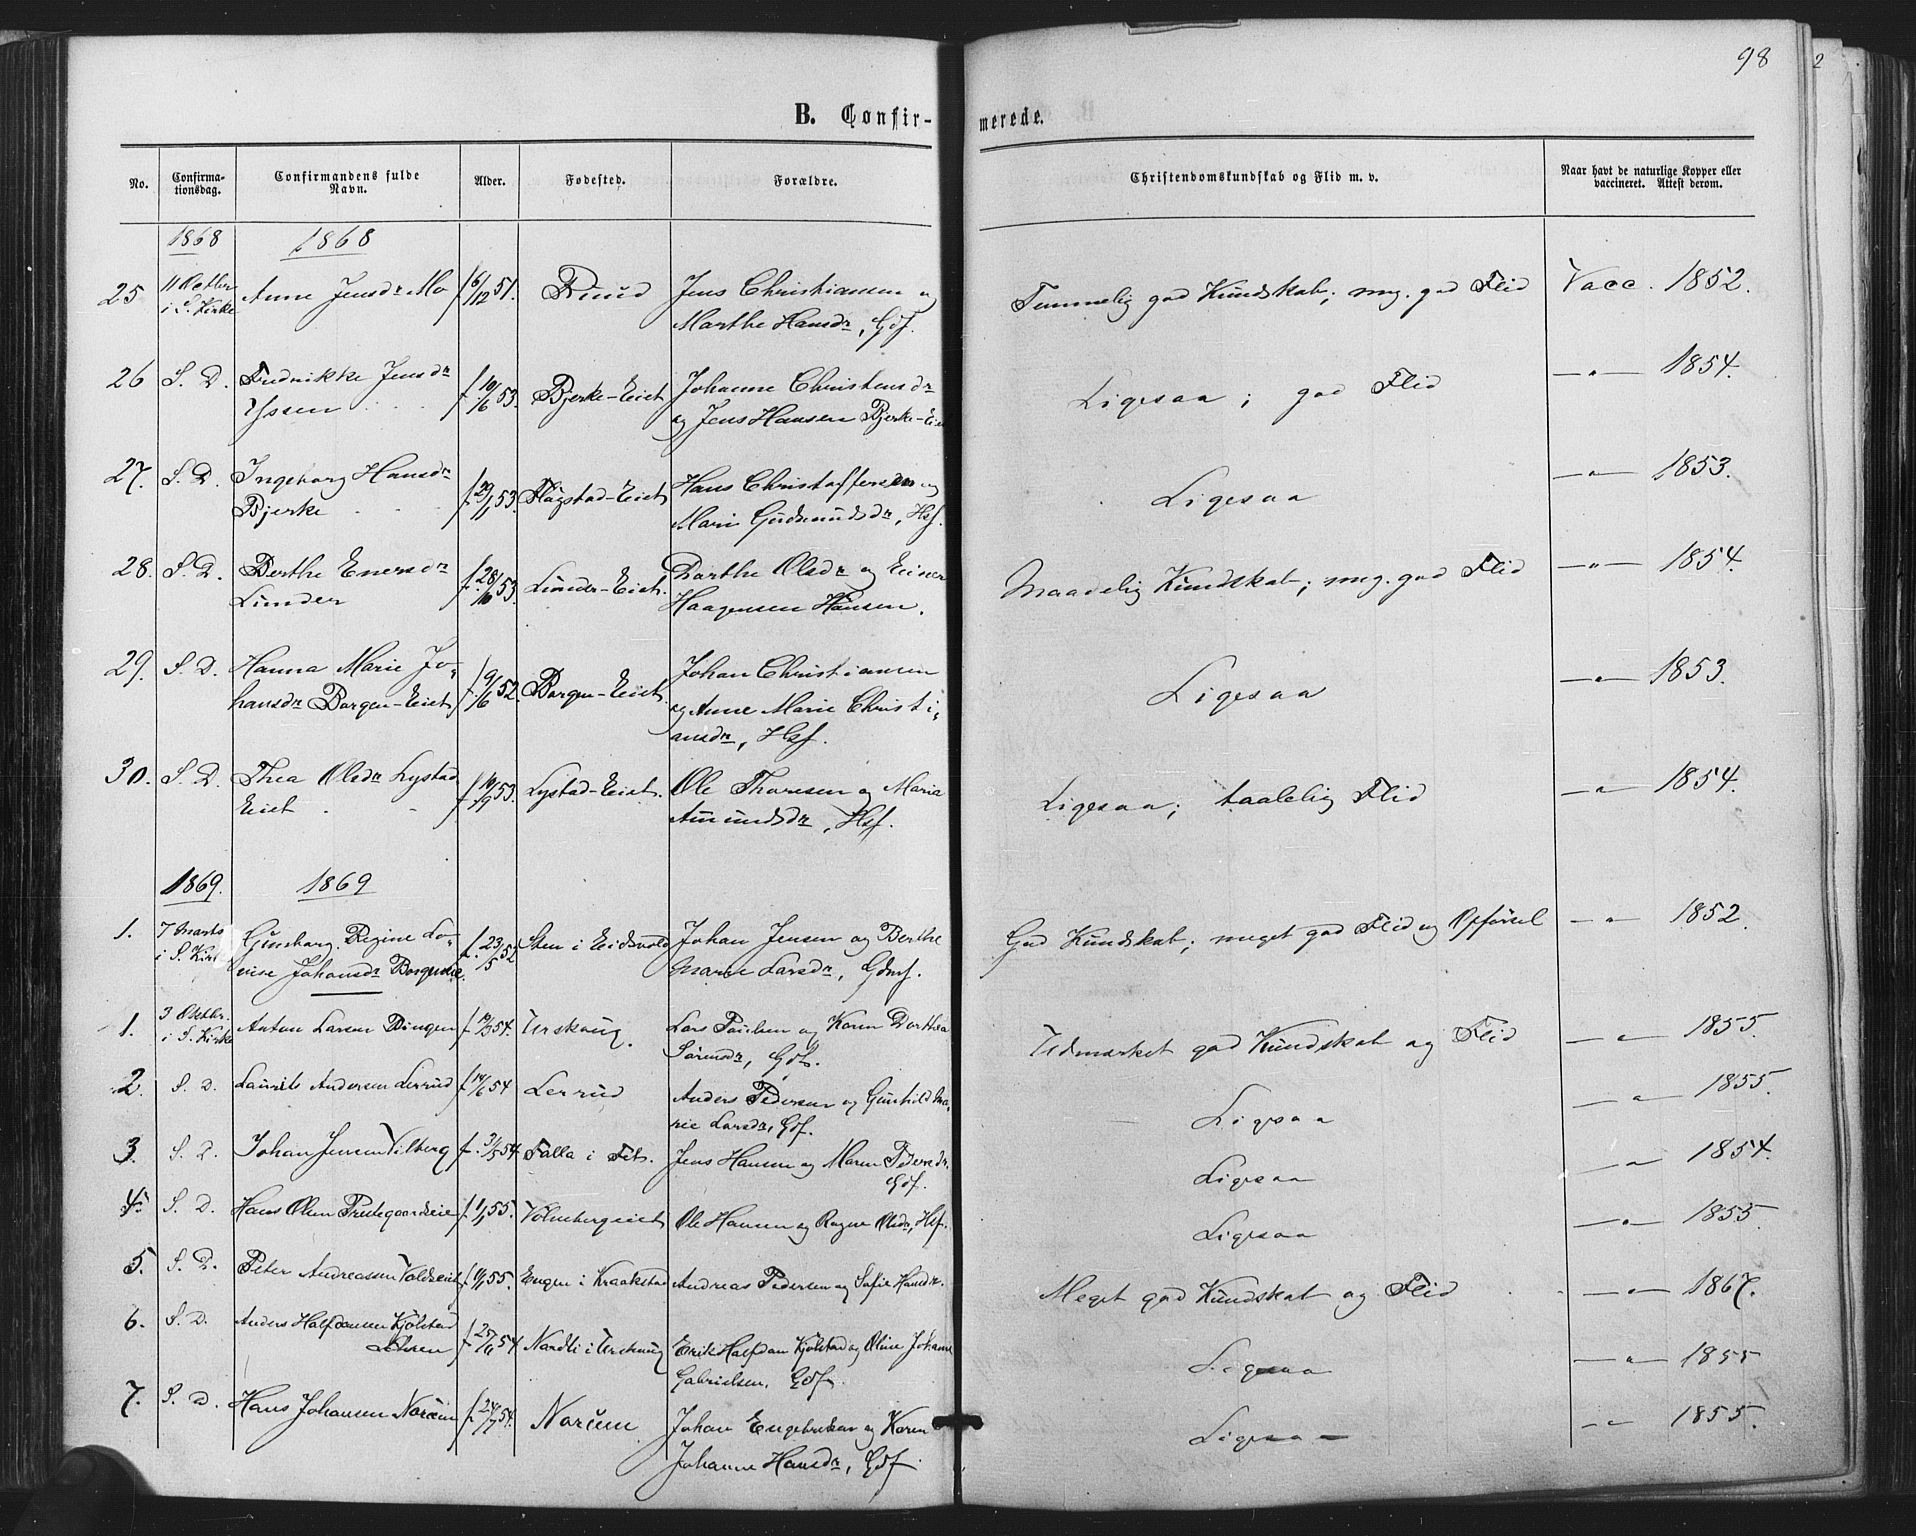 98
2
B. Confirmerede.
No. Confirmationsdag. Confirmandens fulde Navn. Alder. Fødested. Forældre. Christendomskundskab og Flid m. v. Naar havt de naturlige Kopper eller vaccineret. Attest derom.
1868 1868
25 11 Octbr i S. Kirke Anne Jensdr Mo f. 6/12 51. Ruud Jens Christiansen og Marthe Hansdr, Gdf. Temmelig god Kundskab; mg. god Flid Vacc. 1852.
26 S. D. Fredrikke Jensdr Yssen f. 10/6 53. Bjerke-Eiet Johanne Christensdr og Jens Hansen Bjerke-Eie Ligesaa; god Flid —"— 1854.
27. S. D. Ingeborg Hansdr Bjerke f. 29/1 53. Flagstad-Eiet Hans Christoffersen og Mari Gudmundsdr, Hsf. Ligesaa —"— 1853.
28. S. D. Berthe Enersdr Lunder f. 28/10 53. Lunder-Eiet. Dorthe Olsdr og Einer Haagensen Hansen. Maadelig Kundskab; mg. god Flid —"— 1854.
29. S. D. Hanna Marie Johansdr Borgen-Eiet f. 9/6 52. Borgen-Eiet. Johan Christiansen og Anne Marie Christiansdr, Hsf. Ligesaa —"— 1853.
30. S. D. Thea Olsdr Lystad Eiet f. 10/9 53. Lystad-Eiet. Ole Thoresen og Maria Amundsdr, Hsf. Ligesaa; taalelig Flid —"— 1854.
1869. 1869
1. 7 Marts i S. Kirke Gunborg Regine Lovise Johansdr f. 23/5 52 Sten i Eidsvold Johan Jensen og Berthe Marie Larsdr, Gdmf. God Kundskab; meget god Flid og Opførsel —"— 1852
1. 3 Oktbr. i S. Kirke Anton Larsen Bingen f. 54. Urskoug. Lars Paulsen og Karen Dorthea Sørensdr, Gdf. Udmærket god Kundskab og Flid —"— 1855.
2. S. D. Laurits Andersen Lerrud f. 14/6 54 Lerrud Anders Pedersen og Gunhild Marie Larsdr, Gdf. Ligesaa —"— 1855.
3. S. D. Johan Jensen Vilberg f. 3/5 54 Falla i Fet. Jens Hansen og Maren Pedersdr. Gdf. Ligesaa —"— 1854.
4. S. D. Hans Olsen Prestegaardseie f. 55. Volmbergeiet Ole Hansen og Ragne Olsdr, Hsf. Ligesaa —"— 1855.
5. S. D. Peter Andreassen Voldseiet f. 55. Engen i Kraakstad Andreas Pedersen og Sofie Hansdr. Meget god Kundskab og Flid —"— 1867.
6. S. D. Anders Halfdansen Kjølstad f. 25/6 54 Nordli i Urskoug Erik Halfdan Kjølstad og Oline Johanne Gabrielsen, Gdf. Ligesaa —"— 1855
7. S. D. Hans Johansen Norum f. 24/7 54. Norum Johan Engebretsen og Karen Johanne Hansdr, Gdf. Ligesaa —"— 1855.